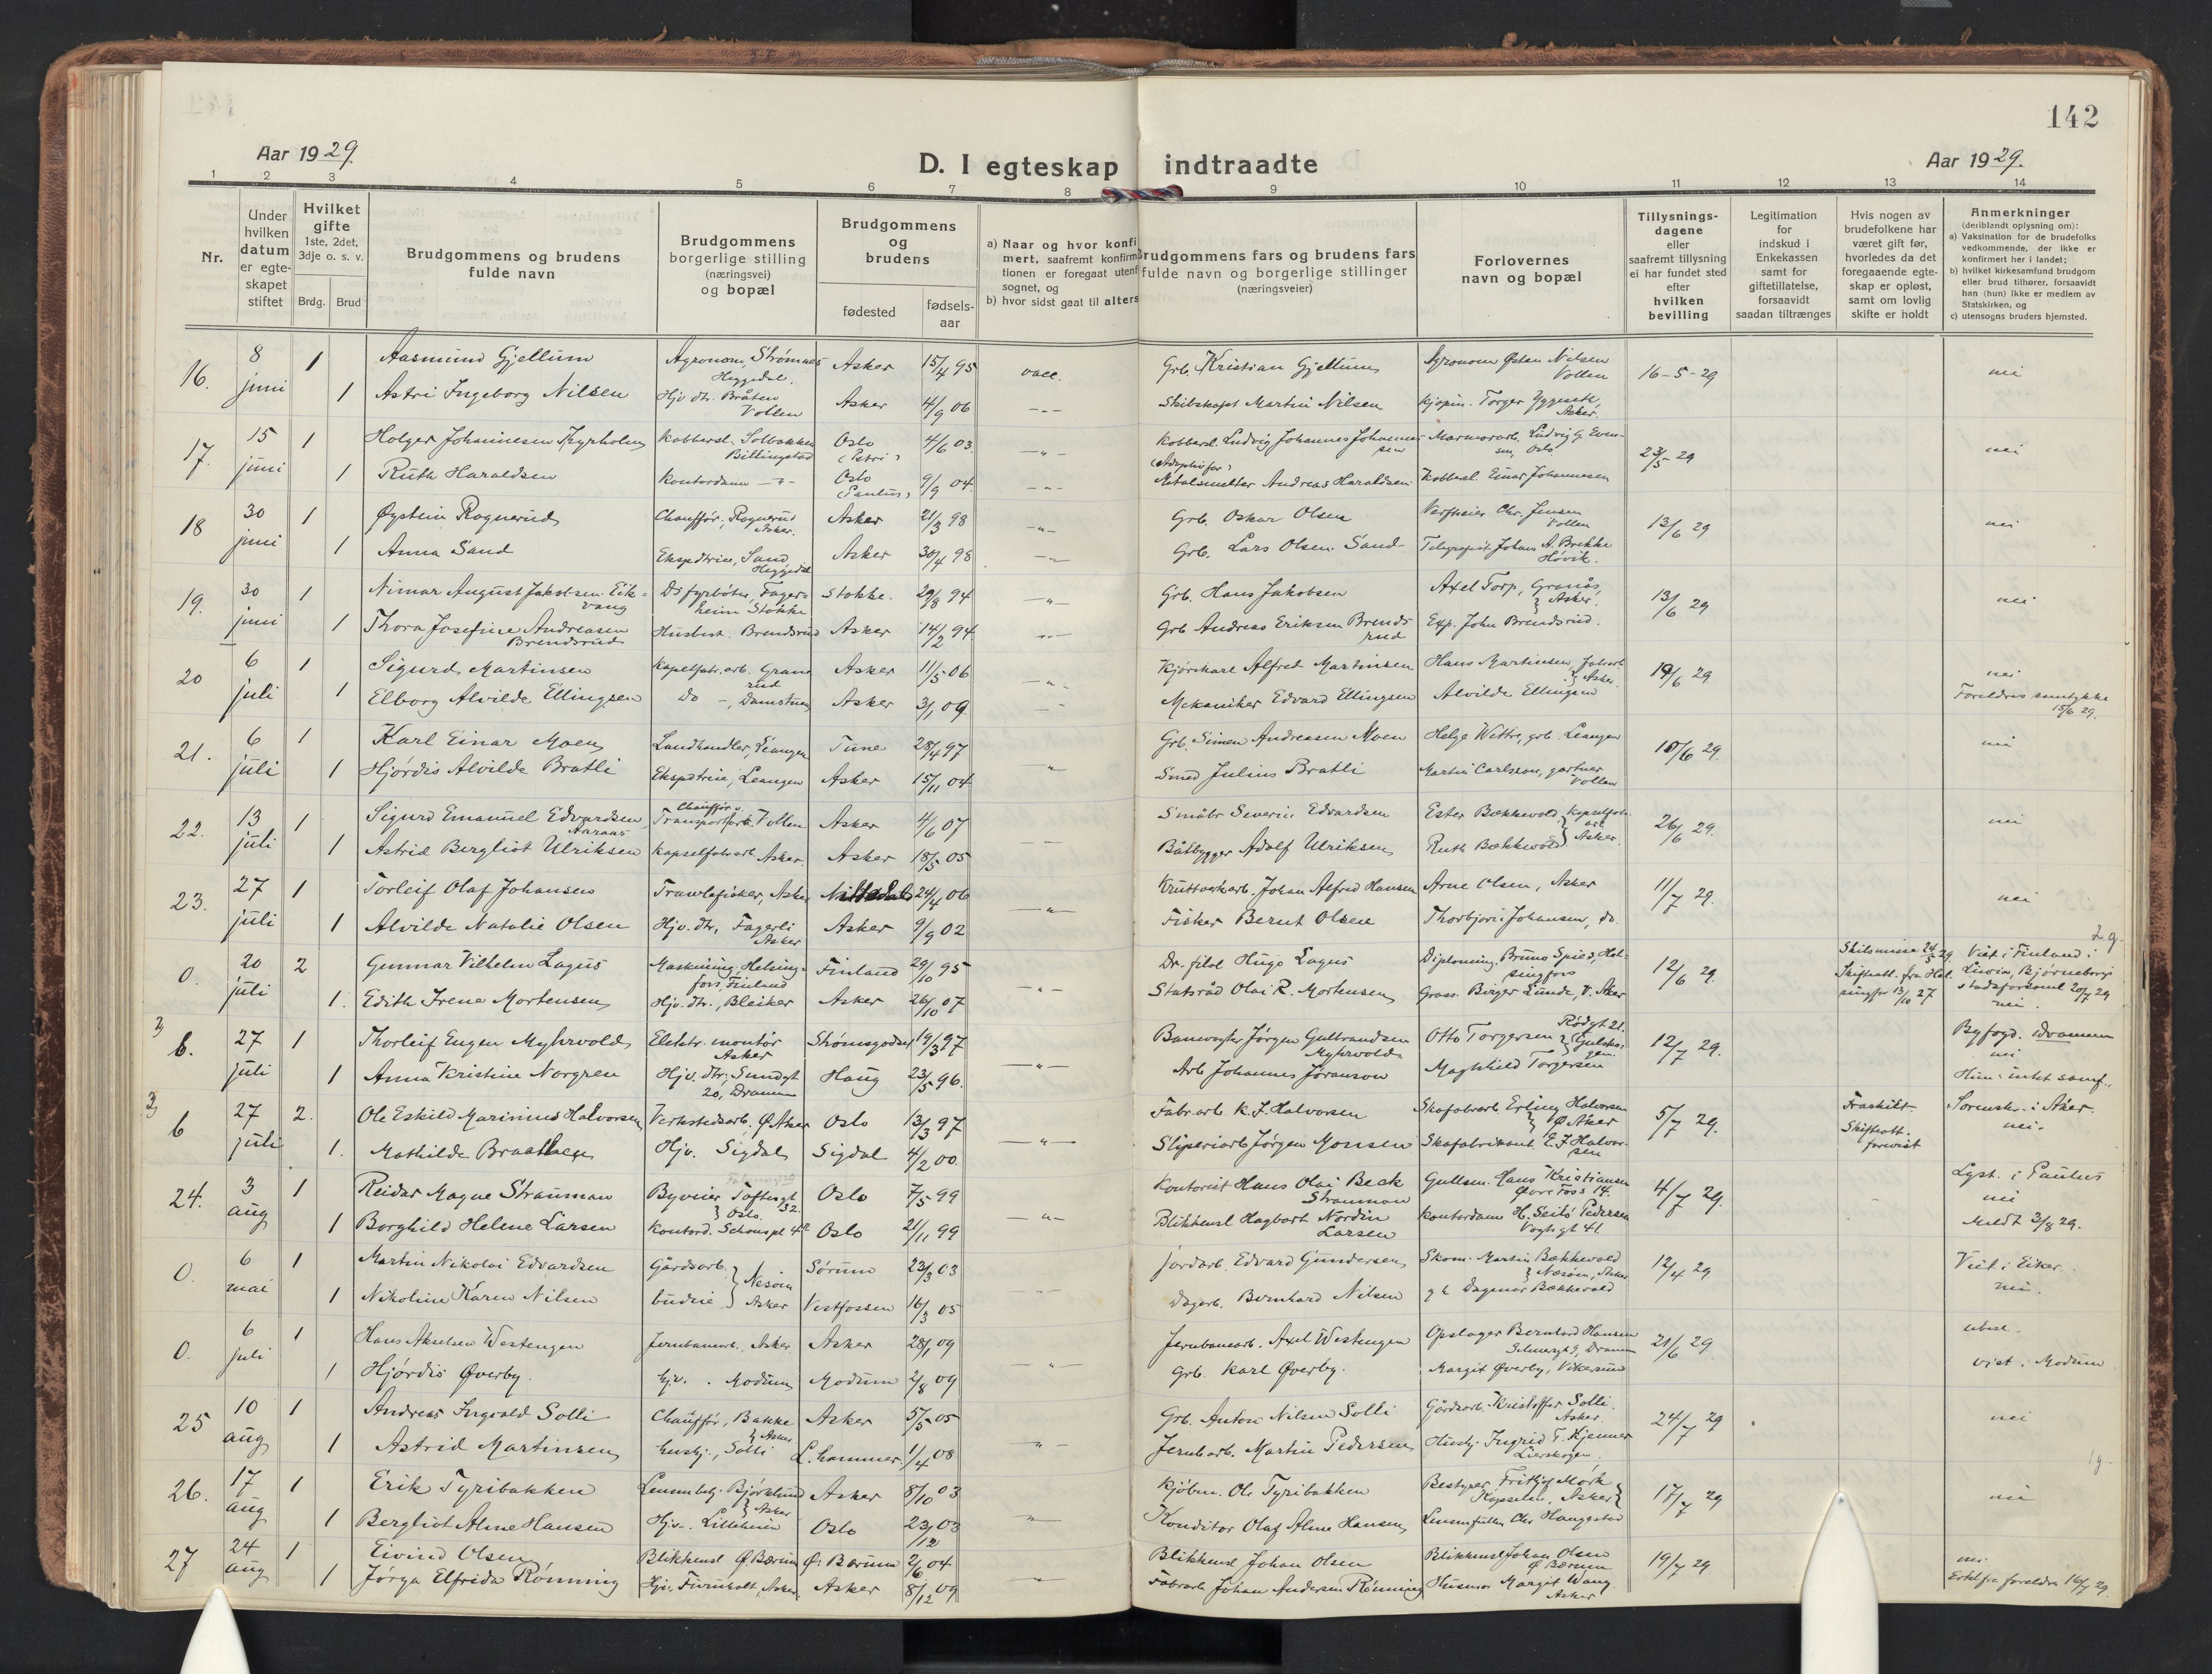 142
Aar 1929.
D. I egteskap indtraadte
Aar 1929.
1 2 3 4 5 6 7 8 9 10 11 12 13 14
Nr.
Under hvilken datum er egte-skapet stiftet
Hvilket gifte 1ste, 2det, 3dje o. s. v.
Brdg. Brud
Brudgommens og brudens fulde navn
Brudgommens borgerlige stilling (næringsvei) og bopæl
Brudgommens og brudens
fødested
fødsels-aar
a) Naar og hvor konfi
mert, saafremt konfirm
tionen er foregaat utenf
sognet, og
b) hvor sidst gaat til alters
Brudgommens fars og brudens fars
fulde navn og borgerlige stillinger
(næringsveier)
Forlovernes navn og bopæl
Tillysnings-dagene eller saafremt tillysning ei har fundet sted efter hvilken bevilling
Legitimation for indskud i Enkekassen samt for giftetillatelse, forsaavidt saadan tiltrænges
Hvis nogen av brudefolkene har været gift før, hvorledes da det foregaaende egte-skap er opløst, samt om lovlig skifte er holdt
Anmerkninger
(deriblandt oplysning om):
a) Vaksination for de brudefolks vedkommende, der ikke er konfirmert her i landet;
b) hvilket kirkesamfund brudgom eller brud tilhører, forsaavidt han (hun) ikke er medlem av Statskirken, og
c) utensogns bruders hjemsted.
16. 8 juni 1 Aasmund Gjellum Agronom, Strømnes Heggedal. Asker 15/4 95 vacc. Grb. Kristian Gjellum Agronom Østen Nilsen Vollen 16-5-29 nei
1 Astri Ingeborg Nilsen Hjv. dtr. Bråten Vollen Asker 4/9 06 Skibskapt Martin Nilsen Kjøpm. Torger Yggeseth, Asker.
17. 15 juni 1 Holger Johannesen Thyrholm Kobbersl. Solbakken Billingstad Oslo (Petri) 4/6 03 Kobbersl. Ludvig Johannes Johannessen (Adoptivfar) Marmorarb. Ludvig G. Evensen, Oslo 23/5 29 nei
1 Ruth Haraldsen Kontordame Oslo (Paulus) 9/9 04. Metalsmelter Andreas Haraldsen Kobbersl. Einar Johannesen
18 30 juni 1 Øystein Rognerud Chauffør, Rognerud Asker. Asker 21/3 98 Grb. Oskar Olsen Verftseier Chr. Jensen Vollen 13/6 29 nei
1 Anna Sand Ekspdtrice, Sand Heggedal Asker 30/4 98 Grb. Lars Olsen Sand Telegrafist Johan A. Brekke Høvik.
19. 30 juni 1 Nimar August Jakobsen Eikvang Ds fyrbøter, Fagerheim Stokke Stokke. 29/8 94 Grb. Hans Jakobsen Axel Torp, Granås, Asker. 13/6 29 nei
1 Thora Josefine Andreasen Brendsrud Husbest. Brendsrud Asker 14/2 94 Grb Andreas Eriksen Brendsrud Exp. John Brendsrud.
20 6 juli 1 Sigurd Martinsen Kapselfabr.arb. Granerud Asker 11/5 06 Kjørekarl Alfred Martinsen Hans Martinsen, Fabrarb Asker. 19/6 29 nei
1 Elborg Alvilde Ellingsen Do -, Damstuen Asker 3/1 09. Mekaniker Edvard Ellingsen Alvilde Ellingsen Foreldres samtykke 15/6 29.
21. 6 juli 1 Karl Einar Moen Landhandler, Leangen Tune 28/4 97 Grb. Simen Andreasen Moen Helge Wettre, grb. Leangen 10/6 29. nei
1 Hjørdis Alvilde Bratli Ekspdtrice, Leangen Asker 15/11 04 Smed Julius Bratli Martin Carlsson, gartner Vollen
22. 13 juli 1 Sigurd Emanuel Edvardsen Aaraas Chauffør o. Transportforb. Vollen Asker 4/6 07 Småbr Severin Edvardsen Ester Bækkevold, Kapselfabr. arb Asker. 26/6 29. nei
1 Astrid Bergliot Ulriksen Kapselfabrarb. Asker. Asker 18/5 05 Båtbygger Adolf Ulriksen Ruth Bækkevold
23. 27 juli 1 Torleif Olaf Johansen Trawlefisker, Asker Nittedal 24/4 06 Kruttverkarb. Johan Alfred Hansen Arne Olsen, Asker 11/7 29. nei
1 Alvilde Natalie Olsen Hjv. dtr., Fagerli Asker Asker 9/9 02 Fisker Bernt Olsen Thorbjørn Johansen, do.
0. 20 juli 2 Gunnar Vilhelm Lagus Maskining. Helsingfors, Finland Finland 29/10 95 Dr. filol Hugo Lagus Diploming. Bruno Spies, Helsingfors 12/6 29. Skilsmisse 24/5 29. Skifteatt. fra Helsingfor 13/10 27 Viet i Finland i Luvia, Bjørneborgs stadsforsaml 20/7 29 nei
1. Edith Irene Mortensen Hjv. dtr., Bleiker Asker 26/10 07 Statsråd Olai R. Mortensen Gross. Birger Lunde, V. Aker
b. 27 juli 1 Thorleif Eugen Myhrvold Elektr. montør Asker Strømsgodset 19/3 97 Banevogter Jørgen Gulbrandsen Myhrvold Otto Torgersen Rødgt 21. Gulskogen 12/7 29. Byfogd. i Drammen nei
1 Anna Kristine Norgren Hjv. dtr, Sundgt 20, Drammen Haug 23/5 96. Arb Johannes Jøranson Maghild Torgersen Hun: intet samf.
b 27 juli 2. Ole Eskild Marinius Halvorsen Verkstedsarb. Ø. Aker Oslo 13/3 97 Fabr.arb. K. J. Halvorsen Skofabrarb Erling Halvorsen Ø. Aker 5/7 29. Fraskilt Skifteatt. forevist Sorenskr. i Aker. nei.
1. Mathilde Braathen Hjv. Sigdal Sigdal 4/2 00. Sliperiarb Jørgen Monsen Skofabrikant E. J. Halvorsen
24. 3 aug 1 Reidar Magne Strauman Byveier Toftesgt 32. Oslo. Oslo 7/5 99 Kontorist Hans Olai Beck Strauman Gullsm. Hans Kristiansen Øvrefoss 14. 4/7 29. Lyst. i Paulus nei
1 Borghild Helene Larsen Kontord. Schouspl 4 Oslo 21/11 99 Blikkensl Hagbart Nordin Larsen Kontordame H. Seitø Pedersen Vogtsgt 41. Meldt 3/8 29.
0. 6 mai 1 Martin Nikolai Edvardsen Gårdsarb. Nesøen Asker Sørum 23/3 03 Jordarb. Edvard Gundersen Skom. Martin Bækkevold Næsøen, Asker 12/4 29 Viet i Eiker. nei.
1 Nikoline Karen Nilsen budeie Vestfossen 16/3 05 Dagarb. Bernhard Nilsen gk Dagmar Bækkevold
0. 6 juli 1 Hans Akselsen Westengen Jernbanearb. Asker. Asker 28/1 09 Jernbanearb. Axel Westengen Opslager Bernhard Hansen 21/6 29
1 Hjørdis Øverby. hjv. Modum Modum 2/8 09 Grb. Karl Øverby. Margit Øverby, Vikersund viet i Modum
25 10 aug 1 Andreas Ingvald Solli Chauffør, Bakke Asker Asker 5/5 05 Grb. Anton Nilsen Solli Gårdsarb. Kristoffer Solli. Asker. 24/7 29 nei
1 Astrid Martinsen hushj., Solli L.hammer. 1/4 08 Jernb.arb. Martin Pedersen Hushj. Ingrid T. Kjenner Lierskogen
26. 17 aug 1 Erik Tyribakken Lensmbetj. Bjørklund Asker Asker 8/10 03 Kjøbm. Ole Tyribakken Bestyrer Fritjof Mørk Kapselen, Asker 17/7 29 nei
1 Bergliot Alme Hansen Hjv. Lilleheim Oslo 23/12 03 Konditor Olaf Alme Hansen Lensmfullm Chr Haugestad
27 24 aug 1 Eivind Olsen Blikkensl Ø. Bærum Ø. Bærum 2/6 04 Blikkensl Johan Olsen Blikkensl Johan Olsen Ø. Bærum 19/7 29 nei.
1 Jørga Elfrida Rønning Hjv. Furuholt, Asker Asker 8/12 09 Fabrarb Johan Andersen Rønning Husmor Margit Wang Asker Erkl fra foreldre 16/7 29.